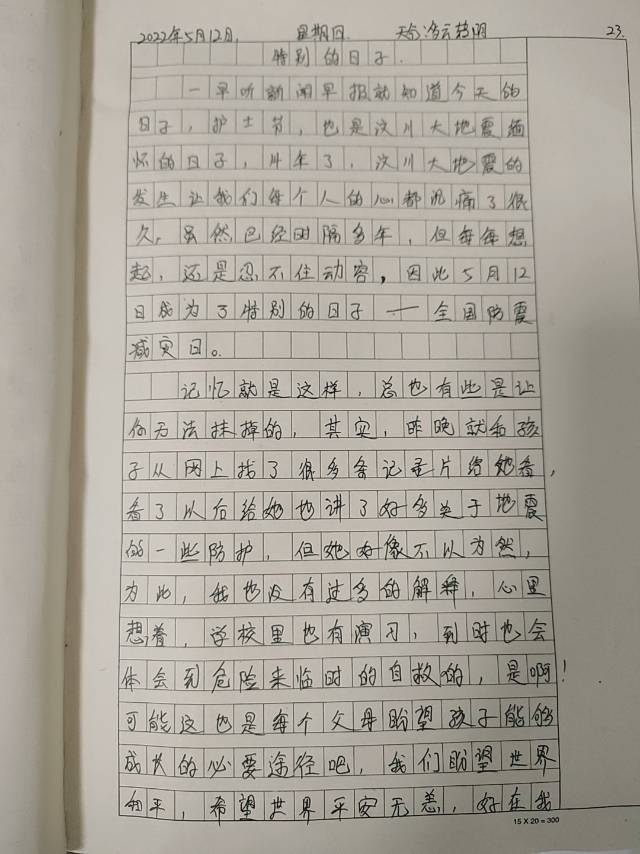 2022年5月12日, 星期四 天气:多云转阴 23.
特别的日子.
一早听新闻早报就知道今天的
日子,护士节,也是汶川大地震缅
怀的日子,14年了,汶川大地震的
发生让我们每个人的心都沉痛了很
久,虽然已经时隔多年,但每每想
起,还是忍不住动容,因此5月12
日成为了特别的日子——全国防震
减灾日。
记忆就是这样,总也有些是让
你无法抹掉的,其实,昨晚就和孩
子从网上找了很多条记录片给她看,
看了以后给她也讲了好多关于地震
的一些防护,但她好像不以为然,
为此,我也没有过多的解释,心里
想着,学校里也有演习,到时也会
体会到危险来临时的自救的,是啊!
可能这也是每个父母盼望孩子能够
成长的必要途径吧,我们盼望世界
和平,希望世界平安无恙,好在我
15×20=300